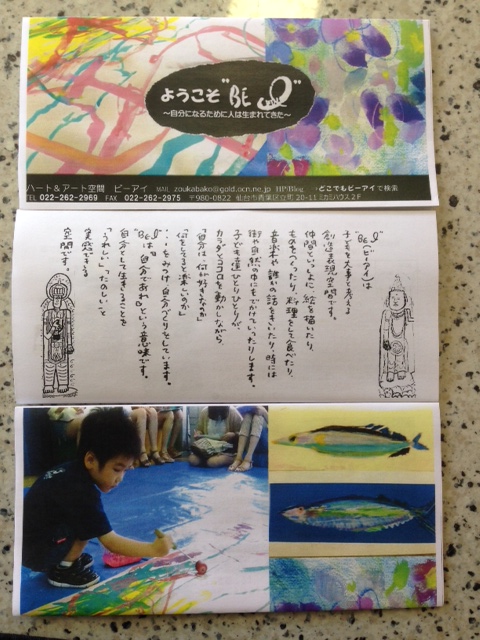 ようこそ"BE i"
～自分になるために人は生まれてきた～
ハート＆アート空間 ビーアイ MAIL zoukabako@gold.ocn.ne.jp HP/Blog →どこでもビーアイで検索
TEL 022-262-2969 FAX 022-262-2975 〒980-0822 仙台市青葉区立町 20-11ミカミハウス2F
"BE i"ビーアイは
子どもを大事と考える
創造と表現の空間です。
仲間といっしょに、絵を描いたり、
ものをつくったり、料理をして食べたり、
音楽や誰かの話をきいたり、時には
街や自然の中にもでかけていったりします。
子ども達ひとりひとりが、
カラダとココロを動かしながら、
「自分は何が好きなのか」
「何をしてると楽しいのか」
…をみつけ、自分づくりをしています。
"BE i"は"自分であれ"という意味です。
自分として生きることを
「うれしい」「たのしい」と
実感できる
空間です。